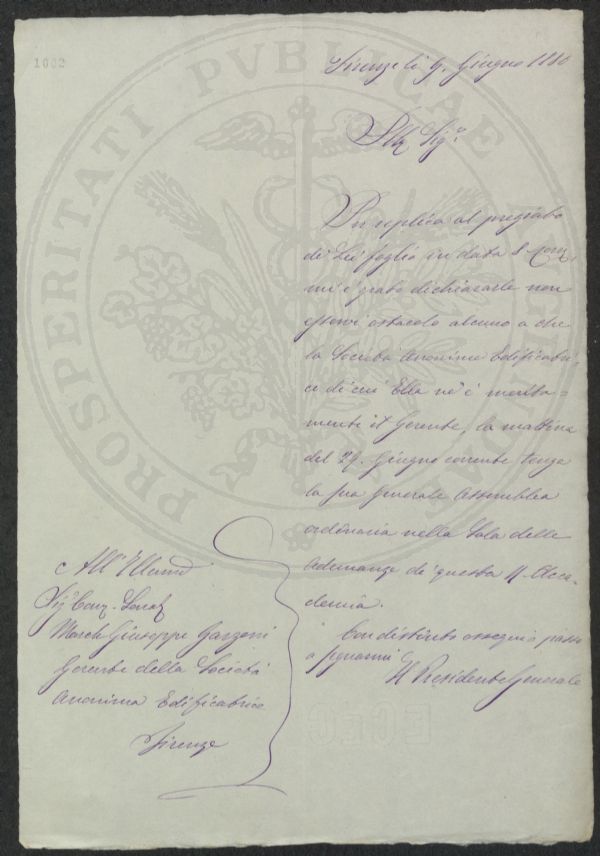 1002
Firenze li 9. Giugno 1880
Ill Sigr.
In replica al pregiato
di Lei foglio in data 8 corr,
mi è grato dichiararle non
esservi ostacolo alcuno a che
la Società Anonima Edificatri-
ce di cui Ella ne è merita-
mente il Gerente, la mattina
del 29. Giugno corrente tenga
la sua Generale Assemblea
ordinaria nella Sala delle
Adunanze di questa R. Acca-
demia.
Con distinto ossequio passo
a segnarmi
Il Presidente Generale
All'Illmo
Sigr Comm. Senat
March Giuseppe Garzoni
Gerente della Società
Anonima Edificatrice
Firenze
PROSPERITATI PVBLICAE